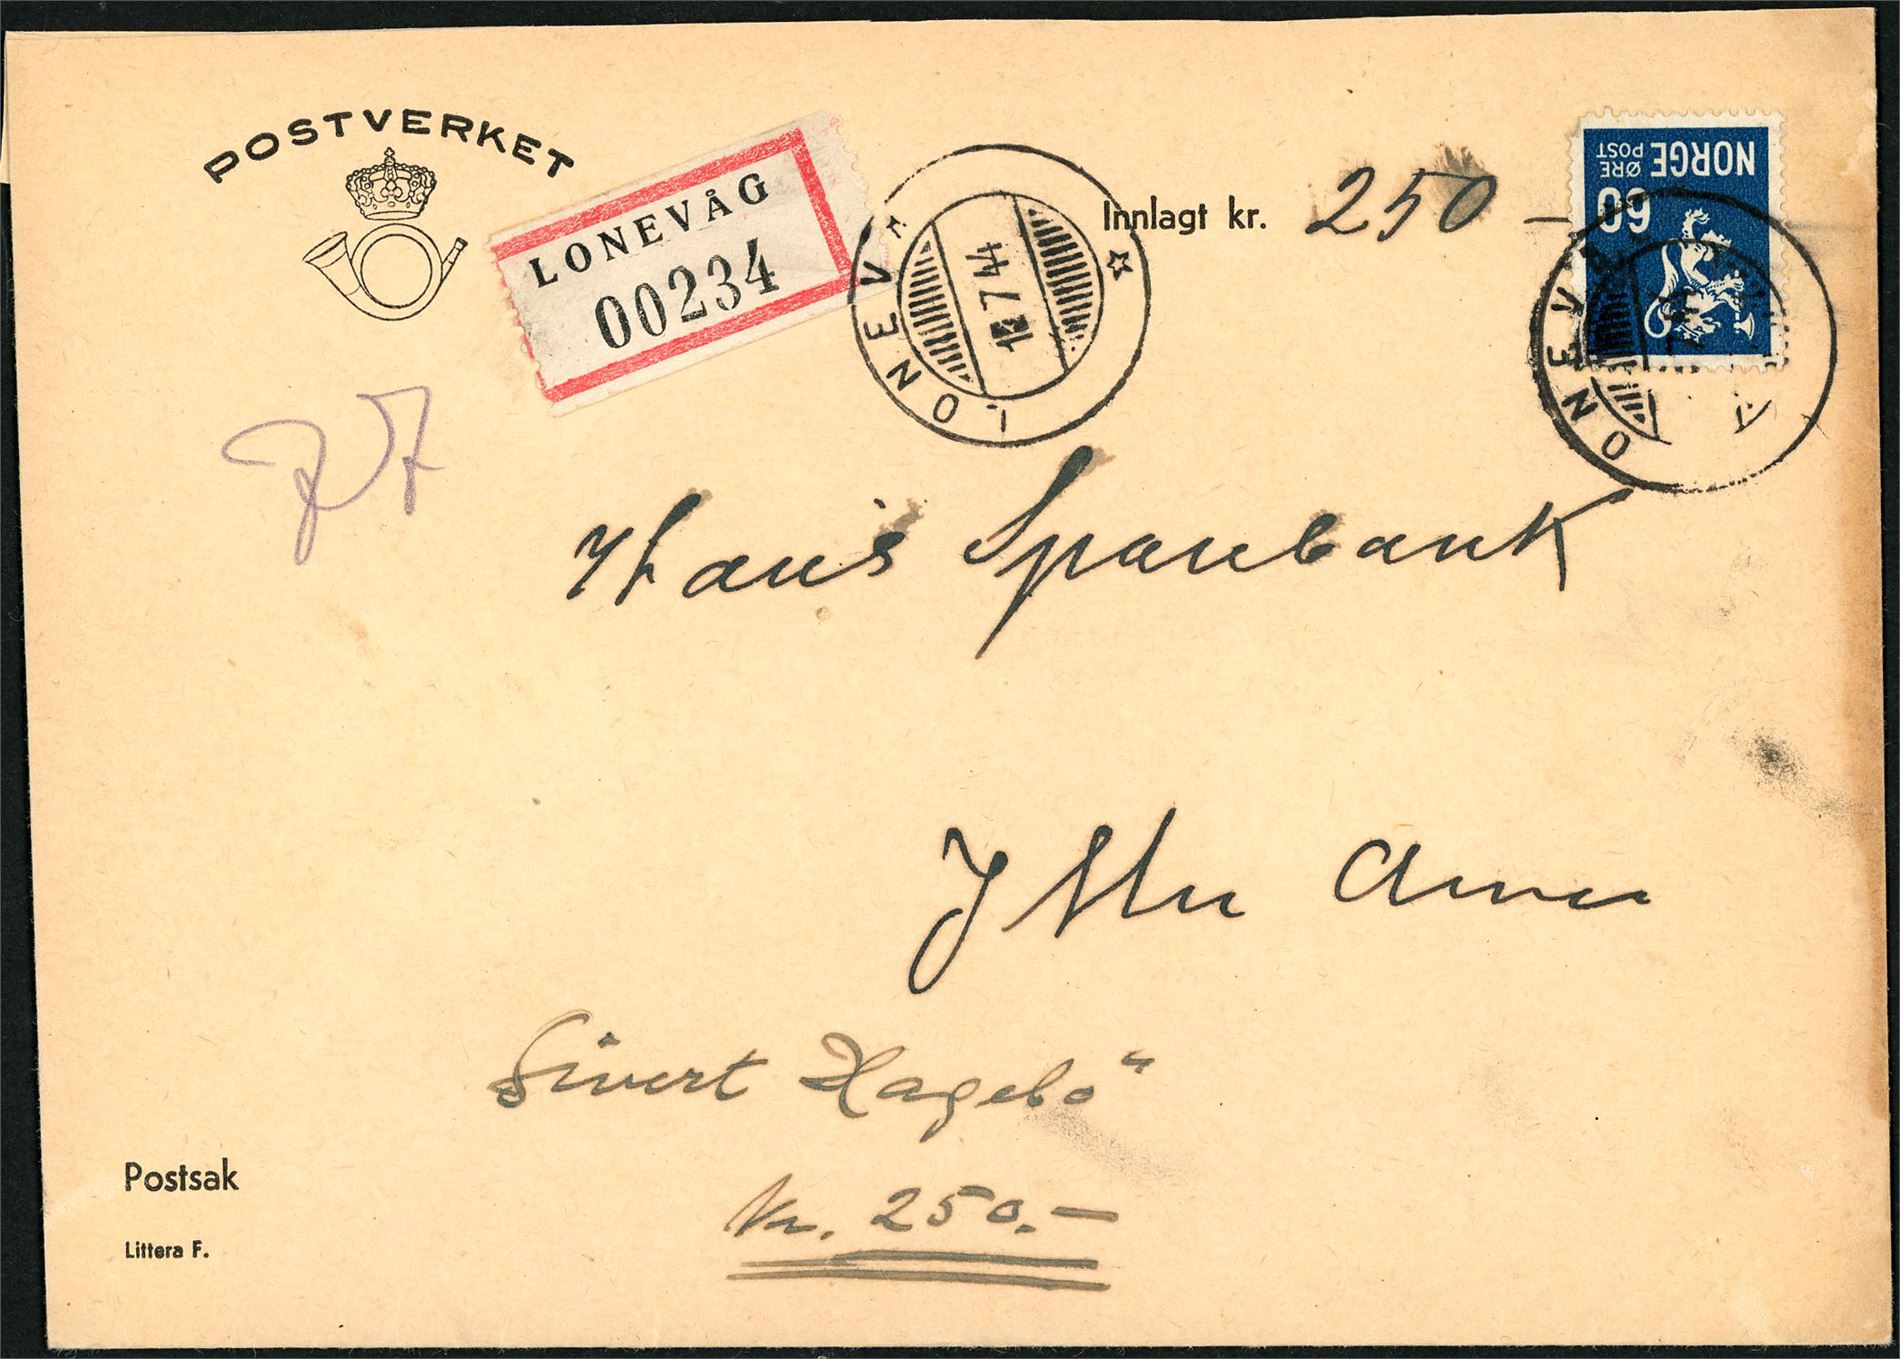 POSTVERKET
LONEVÅG
00234
LONEVÅG
7 44
Innlagt kr. 250 –
NORGE
ØRE POST
60
LONEVÅG
Haus Sparebank
Sivert Hagebö
Kr. 250.–
Postsak
Littera F.